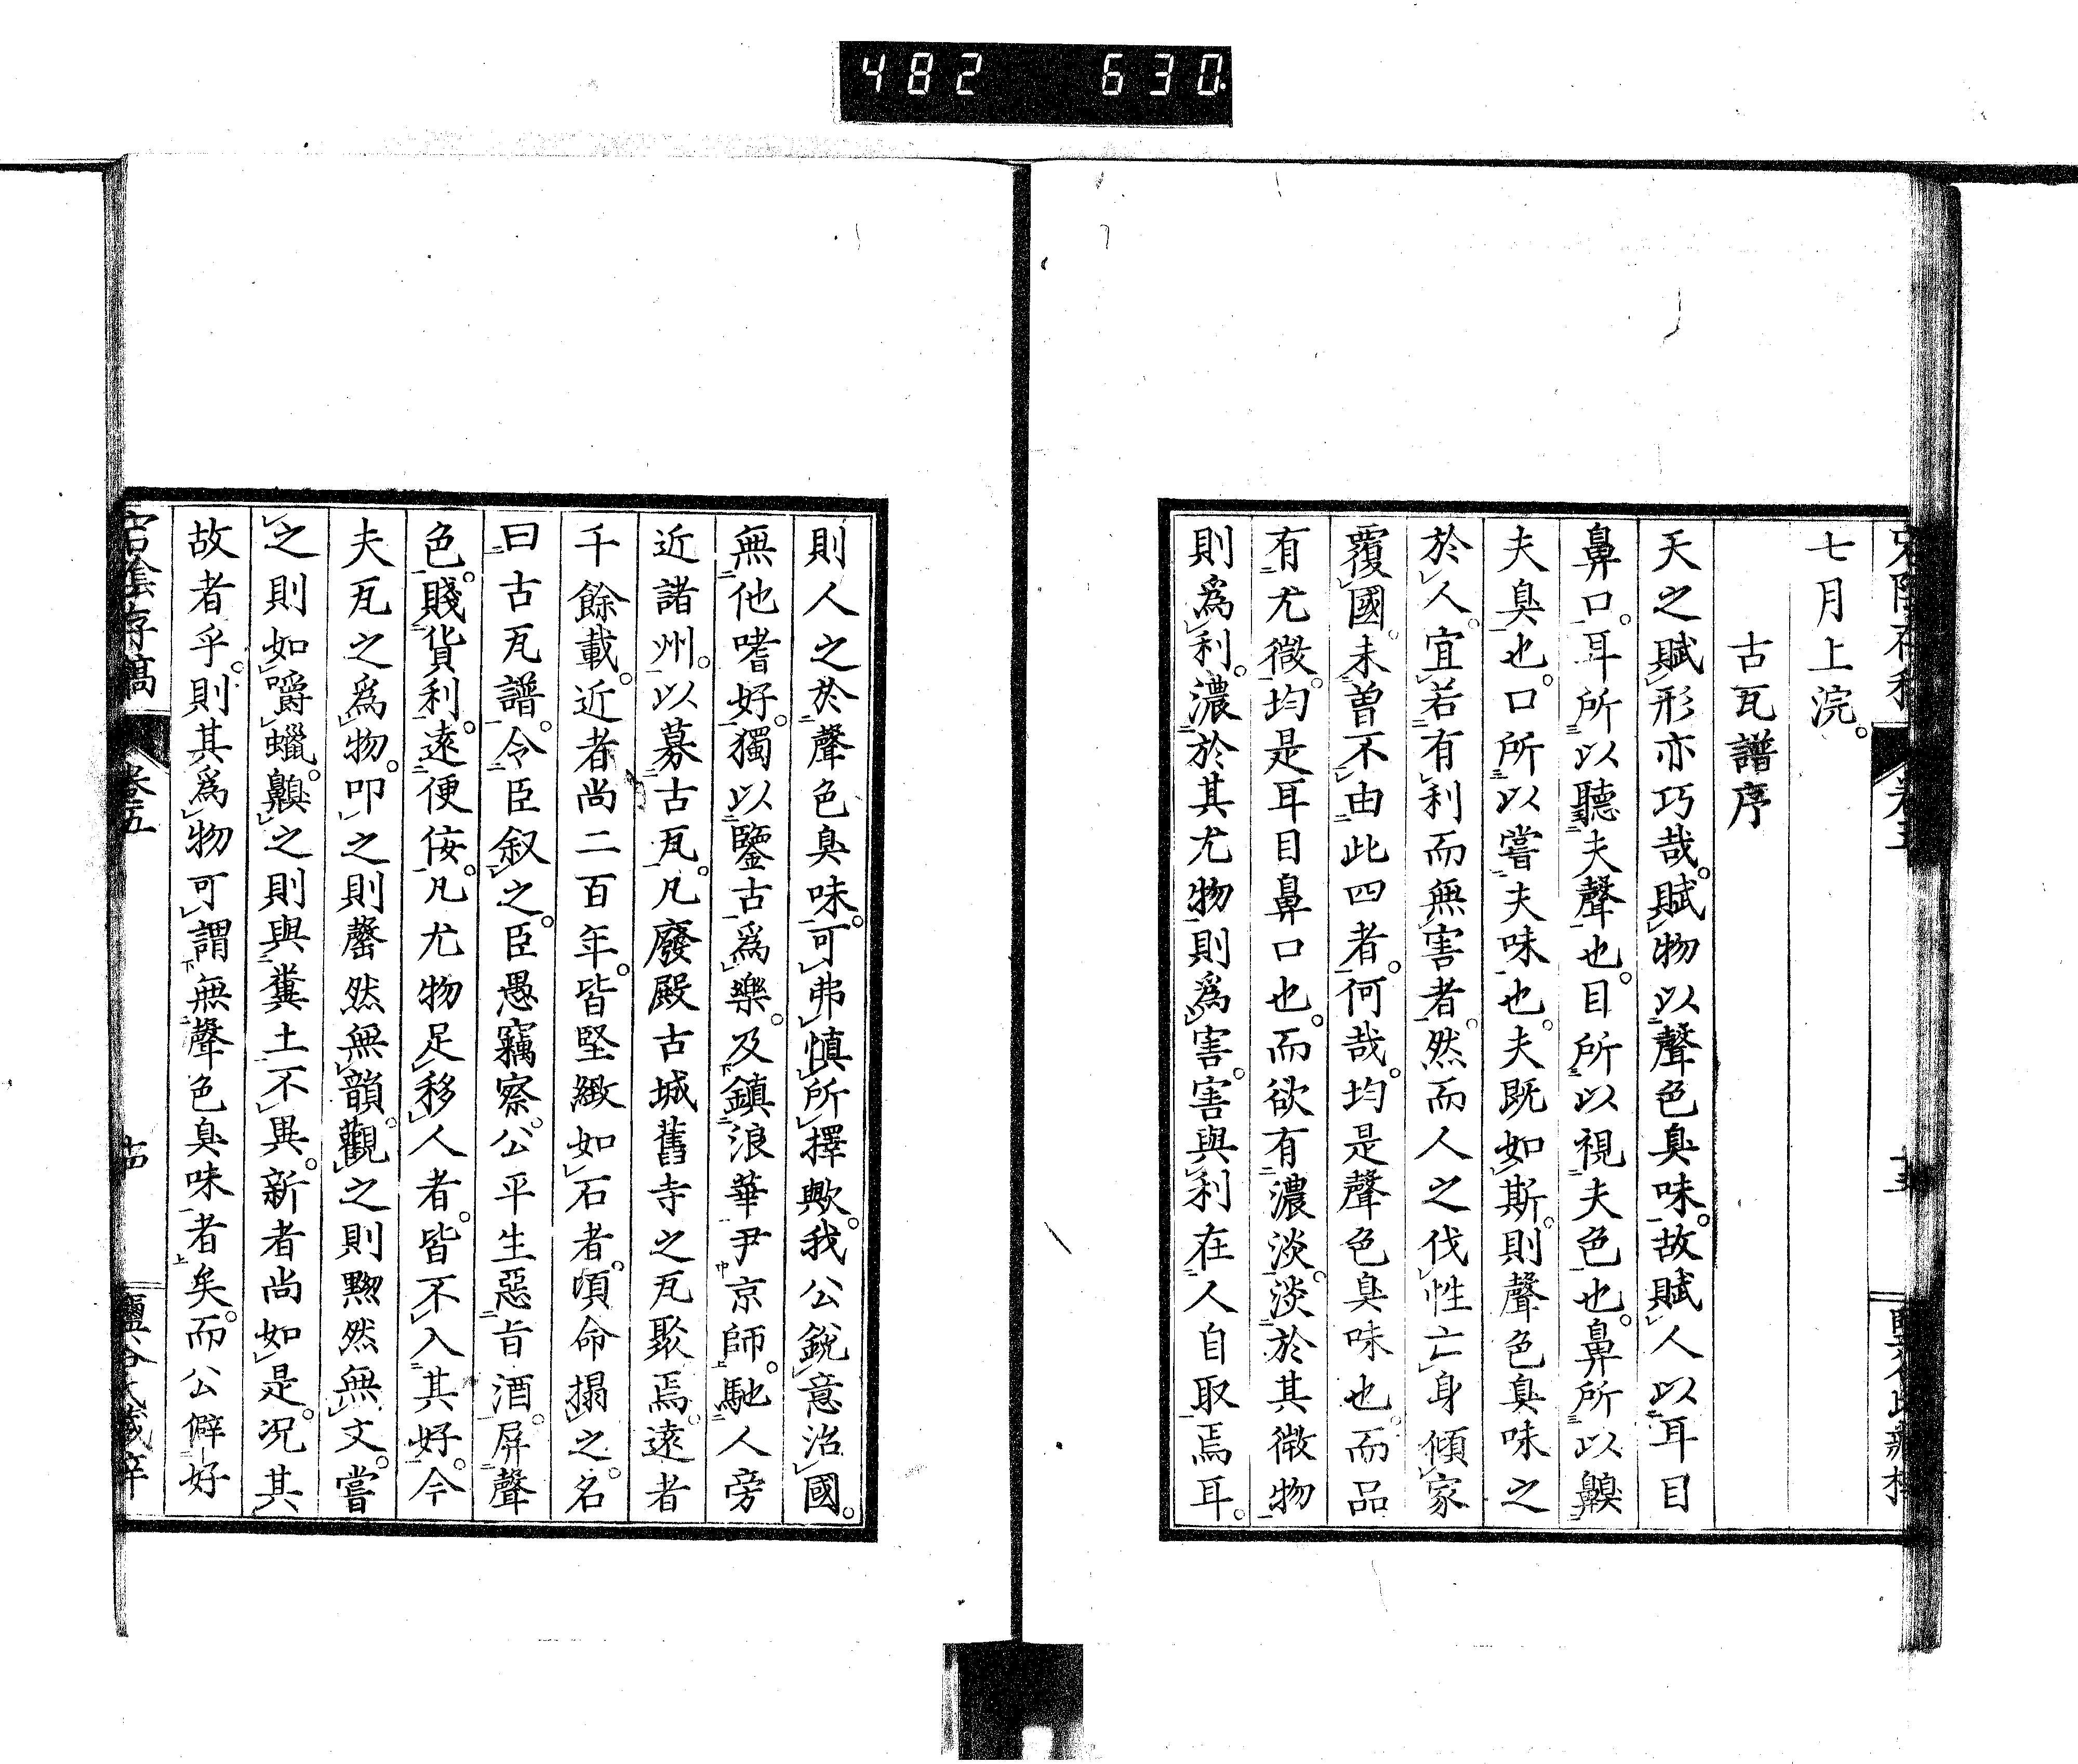 482 630
七月上浣。
古瓦譜序
天之賦形亦巧哉。賦物以聲色臭味。故賦人以耳目
鼻口。耳所以聽夫聲也。目所以視夫色也。鼻所以齅
夫臭也。口所以嘗夫味也。夫既如斯。則聲色臭味之
於人。宜若有利而無害者。然而人之伐性亡身傾家
覆國。未曽不由此四者。何哉。均是聲色臭味也。而品
有尤微。均是耳目鼻口也。而欲有濃淡。淡於其微物
則爲利。濃於其尤物則爲害。害與利在人自取焉耳。
則人之於聲色臭味。可弗慎所擇歟。我公銳意治國。
無他嗜好。獨以鑒古爲樂。及鎮浪華尹京師。馳人旁
近諸州。以募古瓦。凡廢殿古城舊寺之瓦聚焉。遠者
千餘載。近者尚二百年。皆堅緻如石者。頃命搨之。名
曰古瓦譜。令臣叙之。臣愚竊察。公平生惡旨酒。屏聲
色。賤貨利。遠便侫。凡尤物足移人者。皆不入其好。今
夫瓦之爲物。叩之則罄然無韻。觀之則黝然無文。嘗
之則如嚼蠟。齅之則與糞土不異。新者尚如是。況其
故者乎。則其爲物可謂無聲色臭味者矣。而公僻好
宕陰存稿 卷五